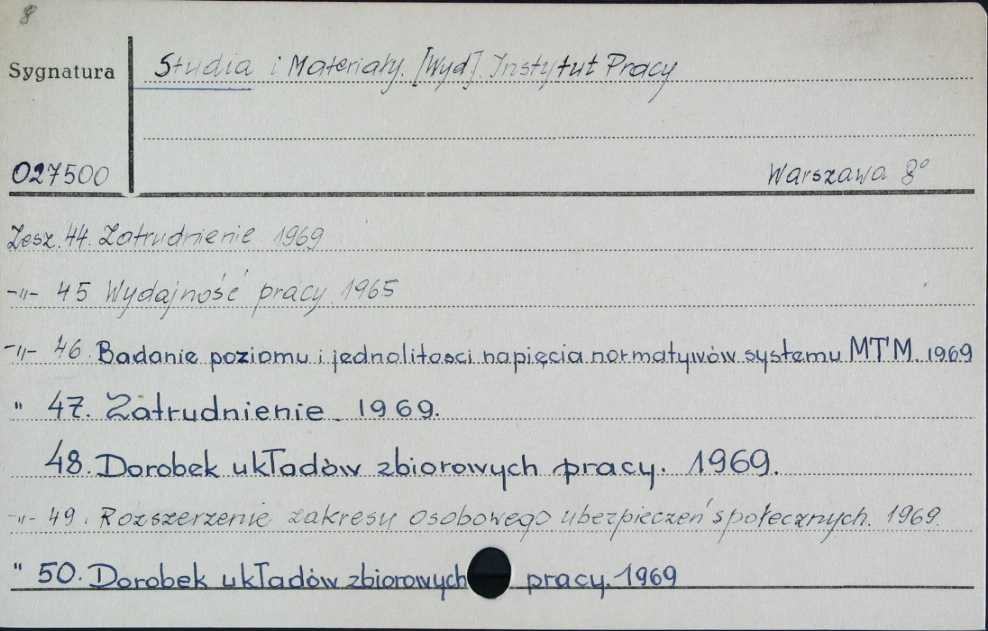 8
Sygnatura
Studia i Materiały. [Wyd]. Instytut Pracy
027500
Warszawa 8°
Zesz. 44. Zatrudnienie 1969
-"- 45 Wydajność pracy 1965
-"- 46. Badanie poziomu i jednolitości napięcia normatywów systemu MTM. 1969
" 47. Zatrudnienie. 1969.
48. Dorobek układów zbiorowych pracy. 1969.
-"- 49. Rozszerzenie zakresu osobowego ubezpieczeń społecznych. 1969.
" 50. Dorobek układów zbiorowych pracy. 1969